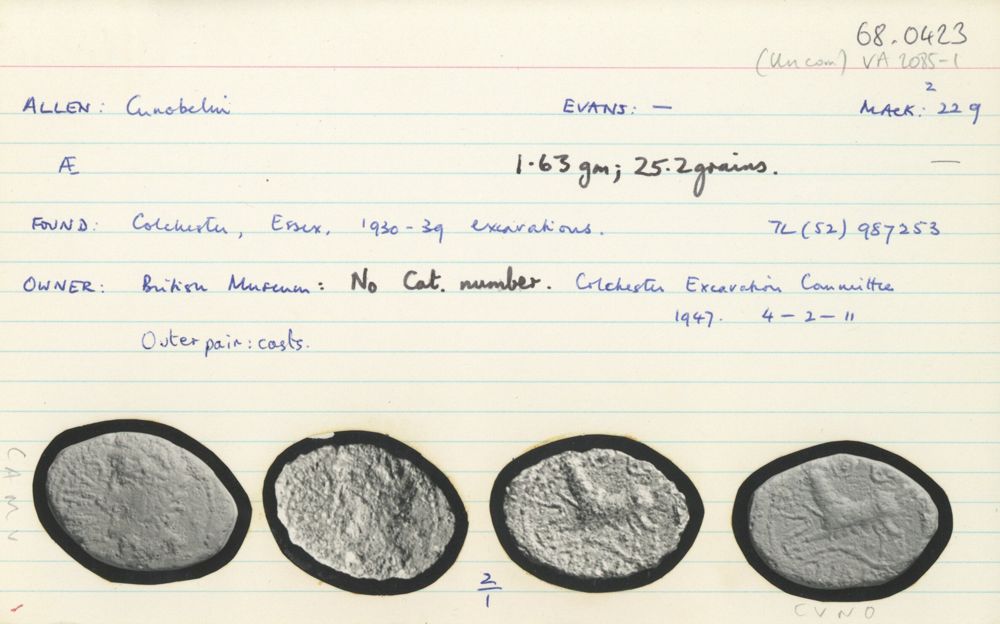 68.0423
(Uncom) VA 2085-1
ALLEN: Cunobelin EVANS: — MACK: 229
2
Æ 1.63 gm; 25.2 grains. —
FOUND: Colchester, Essex, 1930-39 excavations. TL (52) 987253
OWNER: British Museum: No Cat. number. Colchester Excavation Committee
1947. 4-2-11
Outer pair: casts.
CAMV
2/1
CVNO